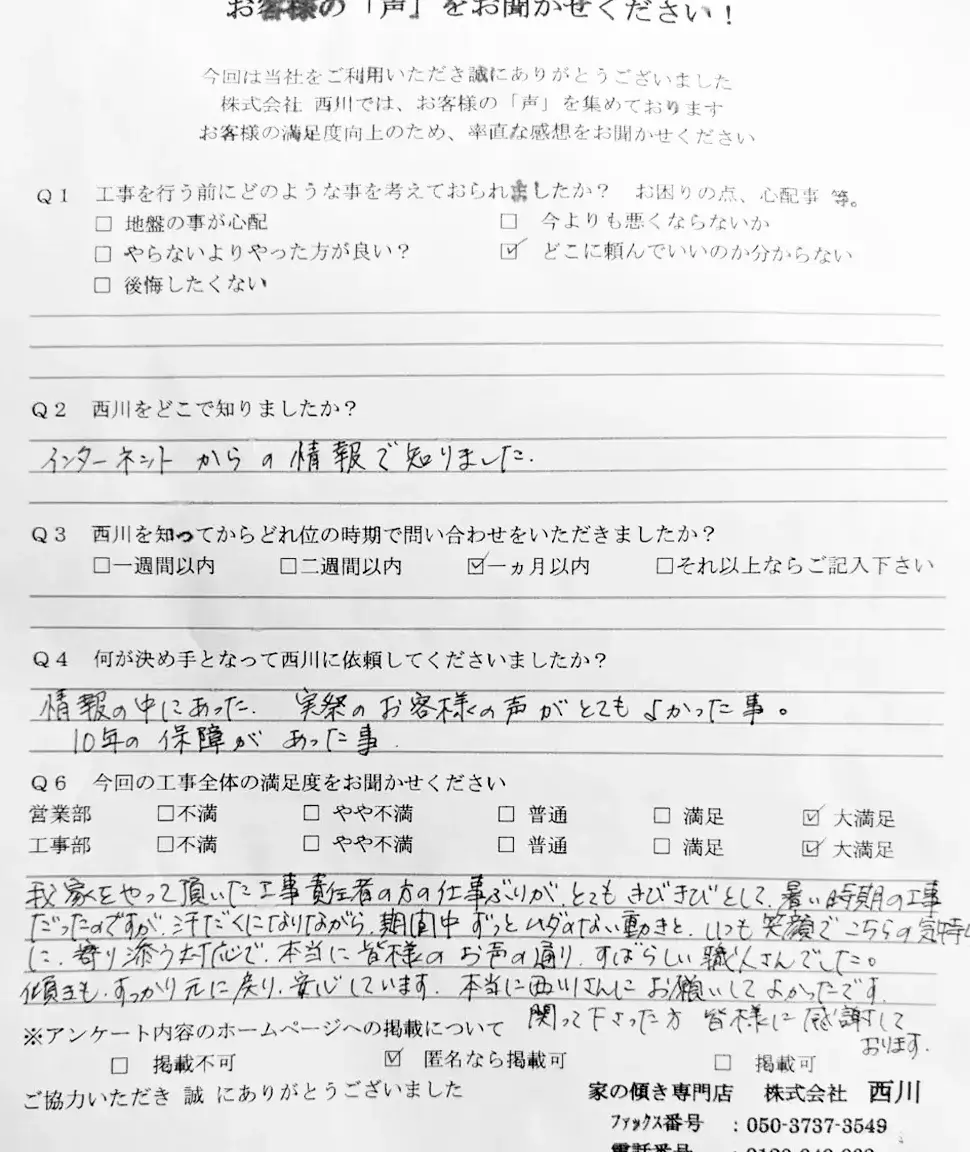 お客様の「声」をお聞かせください！
今回は当社をご利用いただき誠にありがとうございました
株式会社 西川では、お客様の「声」を集めております
お客様の満足度向上のため、率直な感想をお聞かせください
Q1 工事を行う前にどのような事を考えておられましたか？ お困りの点、心配事 等。
□ 地盤の事が心配 □ 今よりも悪くならないか
□ やらないよりやった方が良い？ ☑ どこに頼んでいいのか分からない
□ 後悔したくない
Q2 西川をどこで知りましたか？
インターネットからの情報で知りました.
Q3 西川を知ってからどれ位の時期で問い合わせをいただきましたか？
□一週間以内 □二週間以内 ☑一ヵ月以内 □それ以上ならご記入下さい
Q4 何が決め手となって西川に依頼してくださいましたか？
情報の中にあった. 実際のお客様の声がとてもよかった事。
10年の保障があった事.
Q6 今回の工事全体の満足度をお聞かせください
営業部 □不満 □ やや不満 □ 普通 □ 満足 ☑ 大満足
工事部 □不満 □ やや不満 □ 普通 □ 満足 ☑ 大満足
我家をやって頂いた工事責任者の方の仕事ぶりが、とてもきびきびとして、暑い時期の工事
だったのですが、汗だくになりながら、期間中ずっとムダのない動きと、いつも笑顔でこちらの気持
に、寄り添う対応で、本当に皆様のお声の通り、すばらしい職人さんでした。
傾きも、すっかり元に戻り、安心しています. 本当に西川さんにお願いしてよかったです.
関って下さった方 皆様に感謝して
おります.
※アンケート内容のホームページへの掲載について
□ 掲載不可 ☑ 匿名なら掲載可 □ 掲載可
ご協力いただき 誠 にありがとうございました
家の傾き専門店 株式会社 西川
ﾌｧｯｸｽ番号 ：050-3737-3549
電話番号